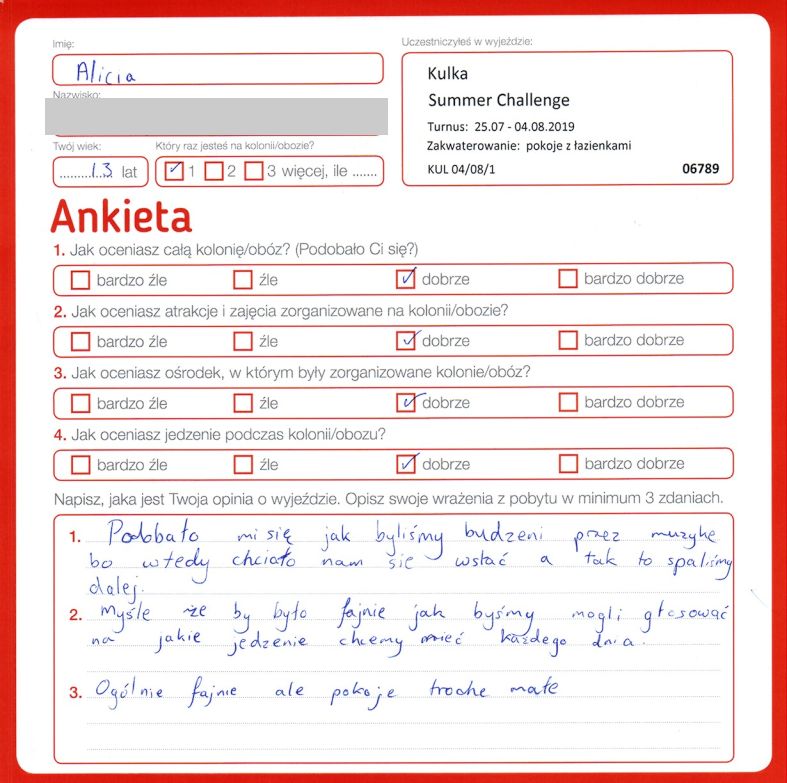 Imię:
Uczestniczyłeś w wyjeździe:
Alicia
Kulka
Summer Challenge
Nazwisko:
Turnus: 25.07 - 04.08.2019
Twój wiek:
Który raz jesteś na kolonii/obozie?
Zakwaterowanie: pokoje z łazienkami
.........13 lat
1 2 3 więcej, ile .......
KUL 04/08/1
06789
Ankieta
1. Jak oceniasz całą kolonię/obóz? (Podobało Ci się?)
bardzo źle źle dobrze bardzo dobrze
2. Jak oceniasz atrakcje i zajęcia zorganizowane na kolonii/obozie?
bardzo źle źle dobrze bardzo dobrze
3. Jak oceniasz ośrodek, w którym były zorganizowane kolonie/obóz?
bardzo źle źle dobrze bardzo dobrze
4. Jak oceniasz jedzenie podczas kolonii/obozu?
bardzo źle źle dobrze bardzo dobrze
Napisz, jaka jest Twoja opinia o wyjeździe. Opisz swoje wrażenia z pobytu w minimum 3 zdaniach.
1. Podobało mi się jak byliśmy budzeni przez muzykę
bo wtedy chciało nam się wstać a tak to spaliśmy
dalej.
2. Myśle że by było fajnie jak byśmy mogli głosować
na jakie jedzenie chcemy mieć każdego dnia.
3. Ogólnie fajnie ale pokoje troche małe